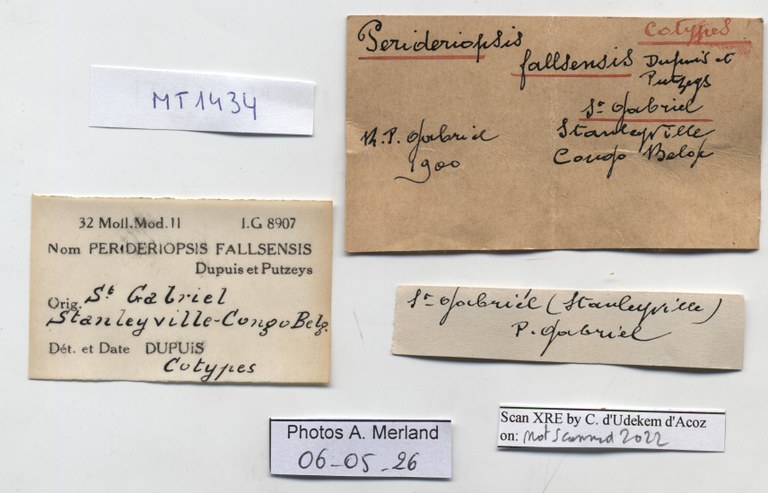 MT1434
Cotypes
Perideriopsis
fallsensis Dupuis et
Putzeys
St Gabriel
R.P. Gabriel Stanleyville
1900 Congo Belge
32 Moll.Mod.II I.G 8907
Nom PERIDERIOPSIS FALLSENSIS
Dupuis et Putzeys
Orig. St Gabriel
Stanleyville-Congo Belg.
Dét. et Date DUPUiS
Cotypes
St Gabriel (Stanleyville)
P. Gabriel
Photos A. Merland
06-05-26
Scan XRE by C. d'Udekem d'Acoz
on: not scanned 2022